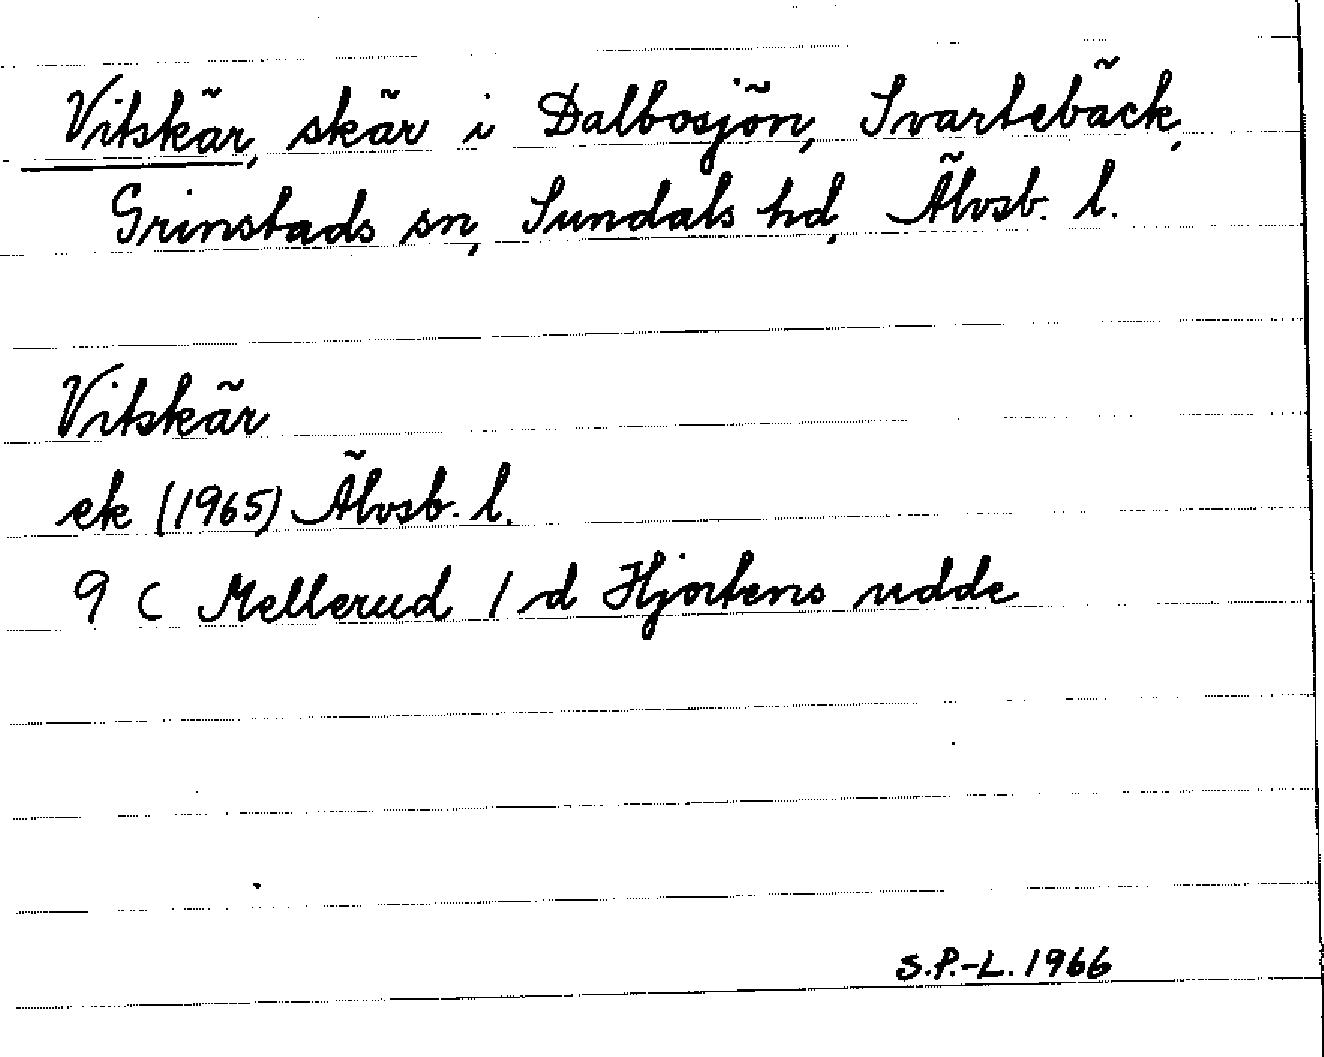 Vitskär, skär i Dalbosjön, Svartebäck,
Grinstads sn, Sundals hd, Älvsb. l.
Vitskär
ek (1965) Älvsb. l.
9 C Mellerud 1 d Hjortens udde
S.P.-L. 1966